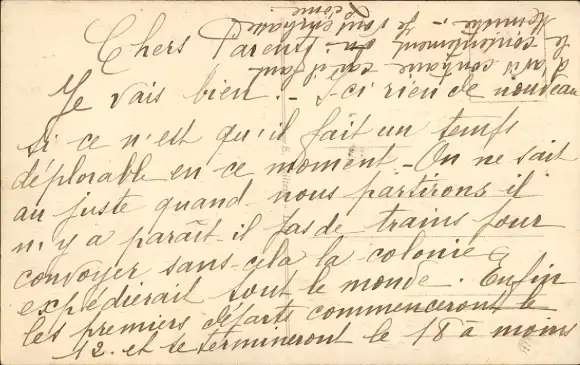 Chers Parents
Je vais bien. - Ici rien de nouveau
si ce n'est qu'il fait un temps
déplorable en ce moment - On ne sait
au juste quand nous partirons il
n'y a paraît-il pas de trains pour
convoyer sans cela la colonie
expédierait tout le monde. Enfin
les premiers départs commenceront le
12. et se termineront le 18 à moins
d'avis contraire car il faut
le consentement du
Ministre. - Je vous embrasse